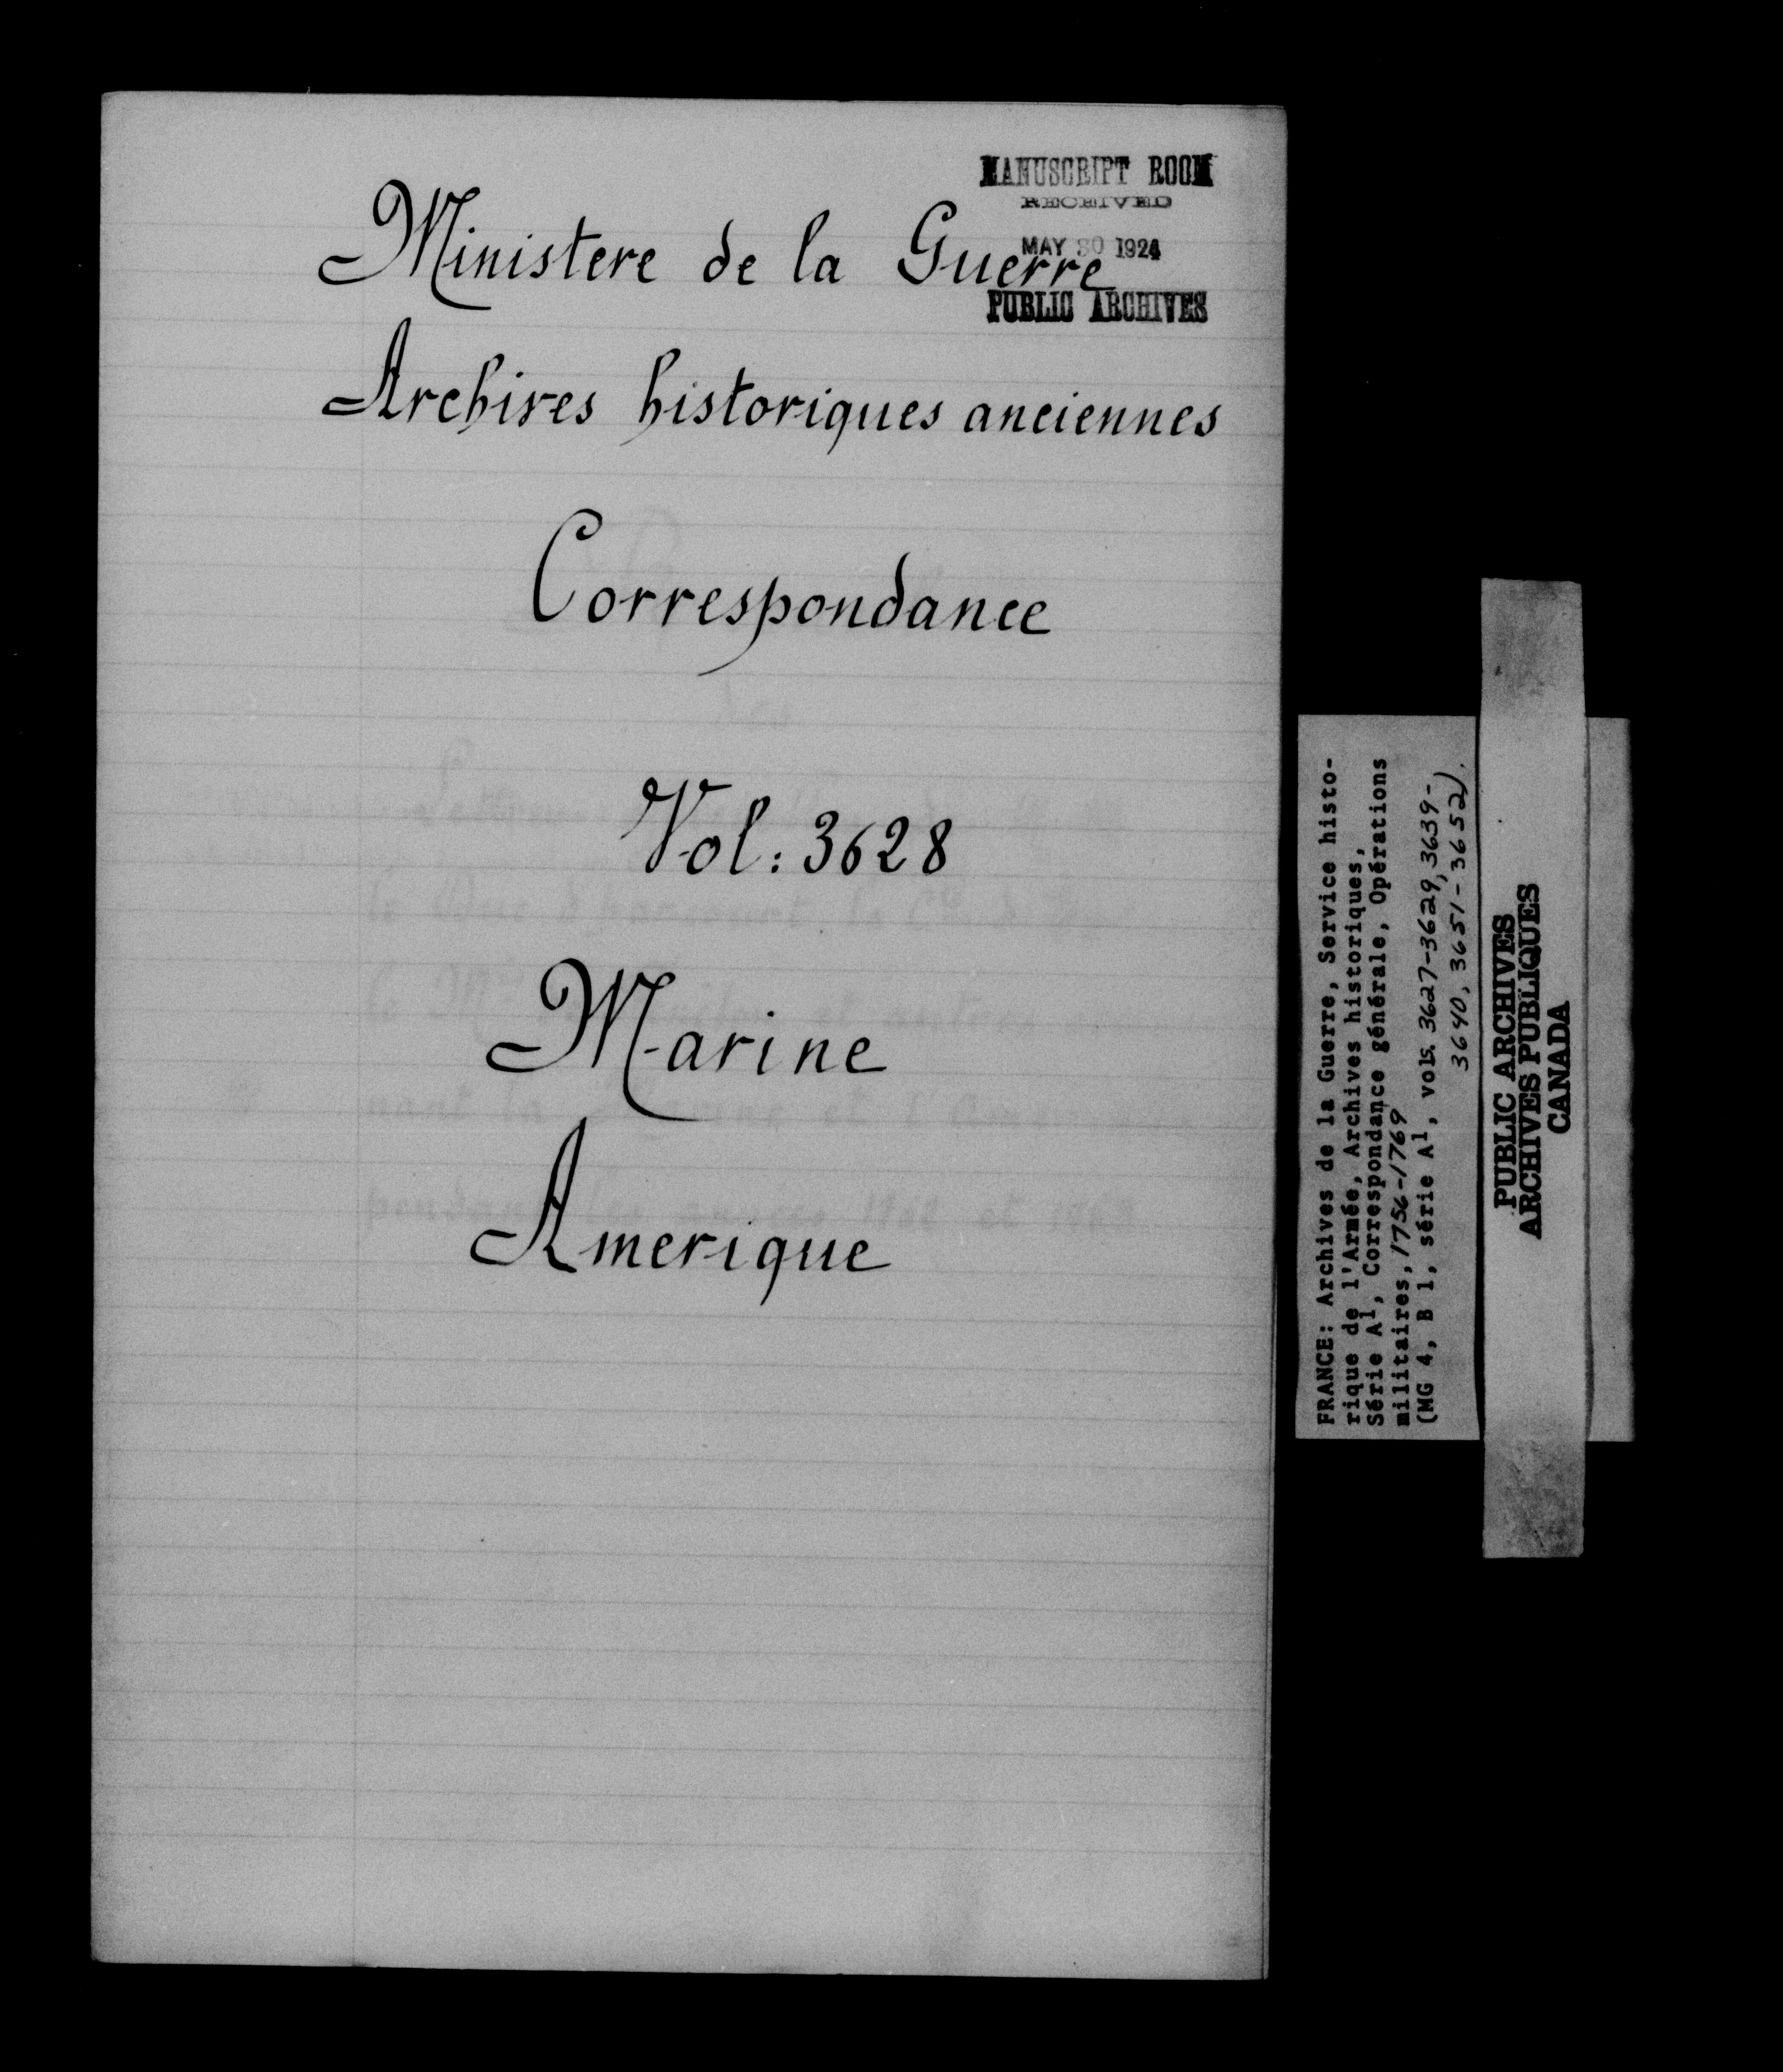 MANUSCRIPT ROOM
RECEIVED
MAY 30 1924
PUBLIC ARCHIVES
Ministere de la Guerre
Archives historiques anciennes
Correspondance
Vol: 3628
Marine
Amerique
FRANCE: Archives de la Guerre, Service histo-
rique de l'Armée, Archives historiques,
Série A1, Correspondance générale, Opérations
militaires, 1756-1769
(MG 4, B 1, série A1, vols. 3627-3629, 3639-
3640, 3651-3652).
PUBLIC ARCHIVES
ARCHIVES PUBLIQUES
CANADA